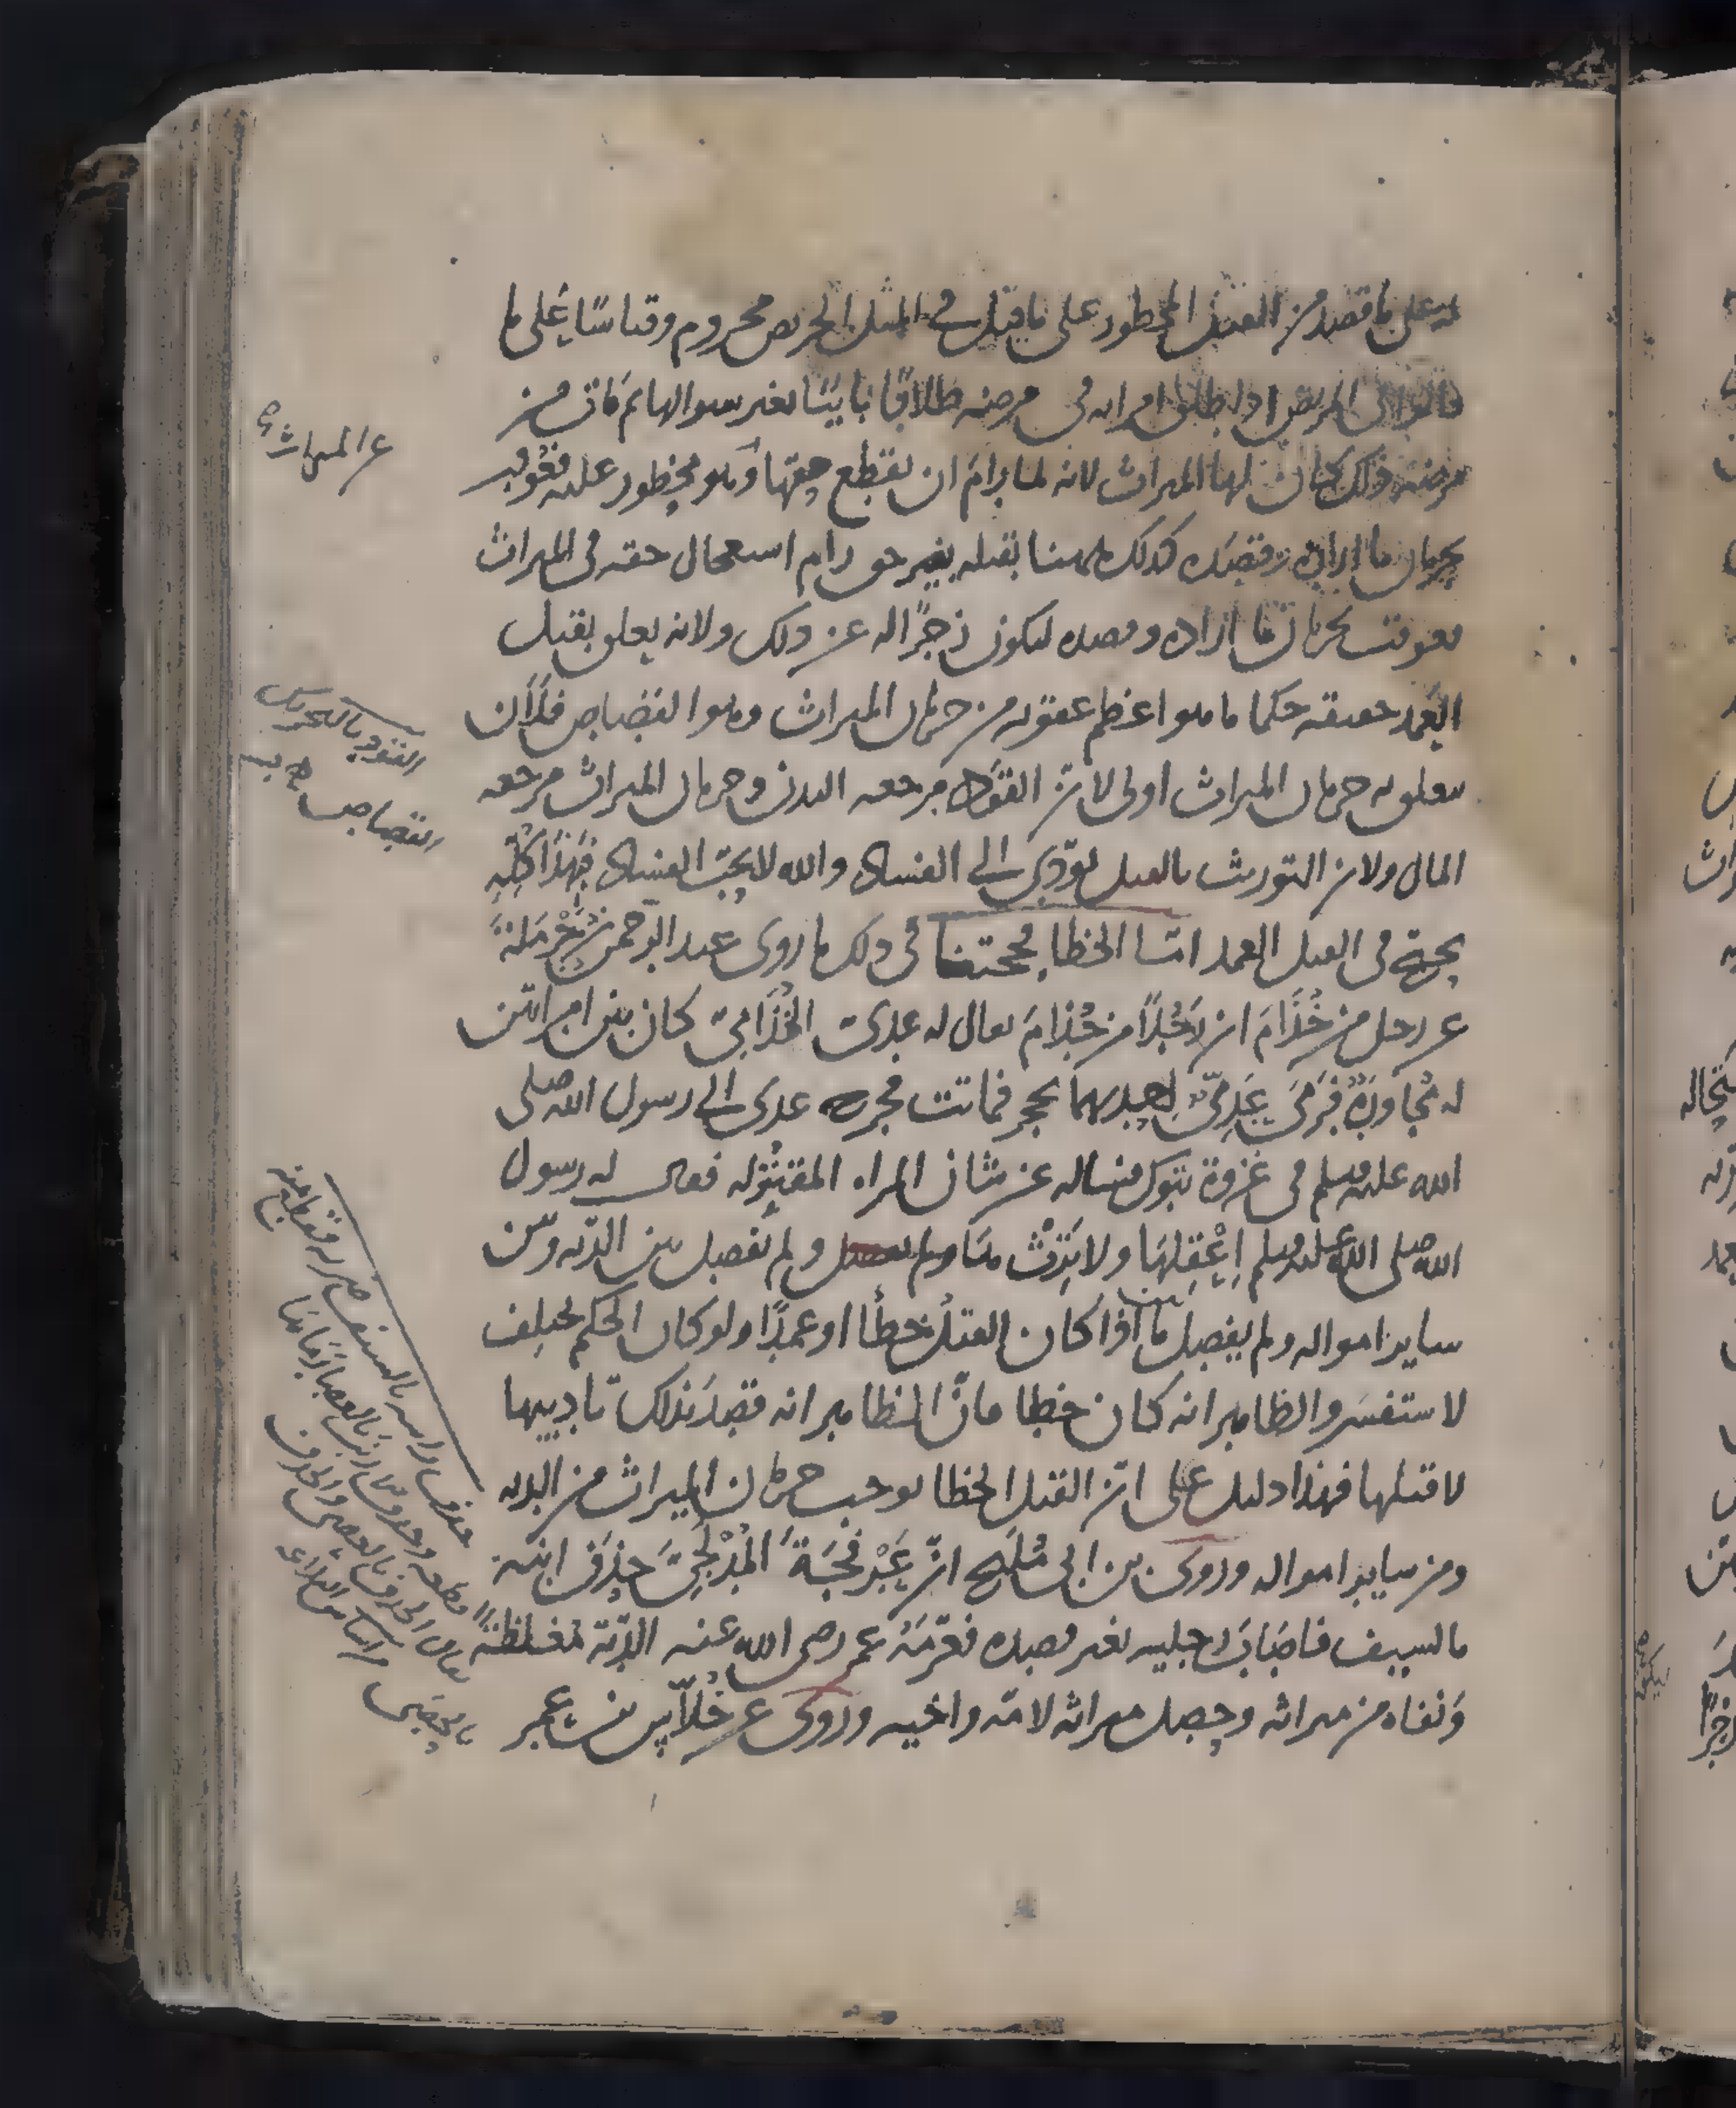 له على ما قصد من القتل المحظور على ما قيل في المثل الحريص محروم وقياسًا على ما
قالوا في المريض اذا طلق امراته في مرضه طلاقًا باينًا بغير سوالها ثم مات من
مرضه ذلك كان لها الميراث لانه لما رام ان يقطع حقها وهو محظور عليه فعوقب
بحرمان ما اراده وقصده كذلك ههنا بقتله بغير حق رام استعجال حقه في الميراث
فعوقب بحرمان ما اراده وقصده ليكون زجرًا له عن ذلك ولانه يعلق بقتل
العمد حقيقه حكما ما هو اعظم عقوبه من حرمان الميراث وهو القصاص فلان
يتعلق به حرمان الميراث اولى لان القَوَد مرجعه البدن وحرمان الميراث مرجعه
المال ولان التوريث بالقتل يودّي الى الفساد والله لا يحبّ الفساد فهذا كلّه
حجة في القتل العمد امّا الخطا فحجتنا في ذلك ما روى عبد الرحمن بن حَرْمَلة
عن رجل من جُذَامَ ان رَجُلًا من جُذامَ يقال له عدي الجُذَاميّ كان بين امراتين
له مُجَاوَرَةٌ فَرَمَى عَدِيٌّ احديهما بحجر فماتت فخرج عدي الى رسول الله صلى
الله عليه وسلم في غزوة تبوك فساله عن شان المراه المقتُوله فقال له رسول
الله صلى الله عليه وسلم اِعْقِلهَا ولا تَرِثْ منها ولم يفصل بين الدّيه وبين
ساير امواله ولم يفصل بين ما اذا كان القتل خطأ او عمدًا ولو كان الحكم يختلف
لاستفسر والظاهر انه كان خطا فانّ الظاهر انه قصد بذلك تاديبها
لا قتلها فهذا دليل على انّ القتل الخطا يوجب حرمان الميراث من الديه
ومن ساير امواله وروى بن ابي مُلَيح انّ عَبْد فَجَةَ المُدْلِجيّ حذف ابنه
بالسيف فاصَابَ رجليه بغير قصده فغرّمَهُ عمر رضى الله عنه الديّة مُغلظةً
وَنفاه من ميراثه وجعل ميراثه لامّه واخيه وروى عن خُلّاس بن عمر
عن الميراث صح
القود بالتحريك
القصاص
حذف راسه بالسيف ضربه فقطع منه
قطعه وحذف الارنب بالعصا رماها بها
يقال الحذف بالعصى والخذف
بالحصى